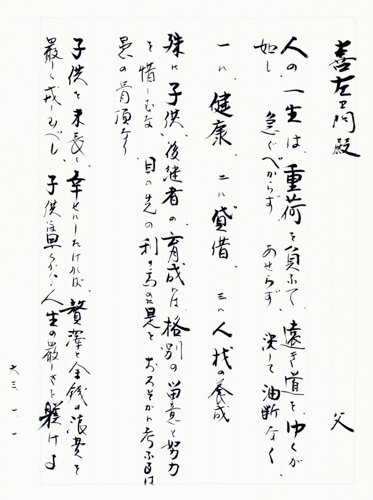 喜左ヱ門殿 父
人の一生は、重荷を負ふて、遠き道を、ゆくが
如し、急ぐべからず あせらず、決して油断なく
一に、健康、二に貸借、三に人材の養成
殊に子供、後継者の育成には、格別の留意と努力
を惜しむな 目の先の利 おろそかに考ふるは
愚の骨頂なり
子供を末長く、幸せにしたければ、贅澤と金銭の浪費を
厳しく戒しむべし、子供 人生の厳しさを躾けよ
六三、一、一